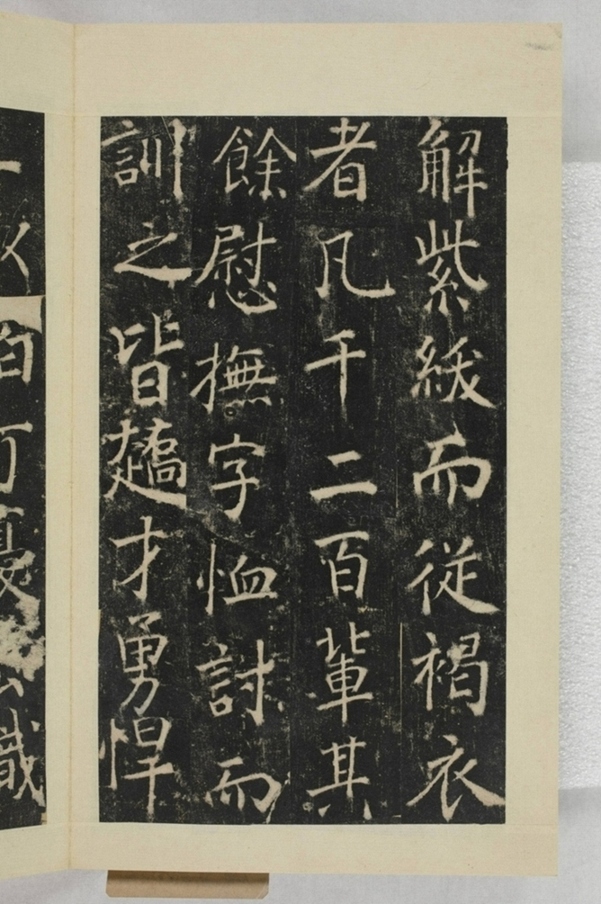 解紫紱而從褐衣
者凡千二百輩其
餘慰撫字恤討而
訓之皆趫才勇悍